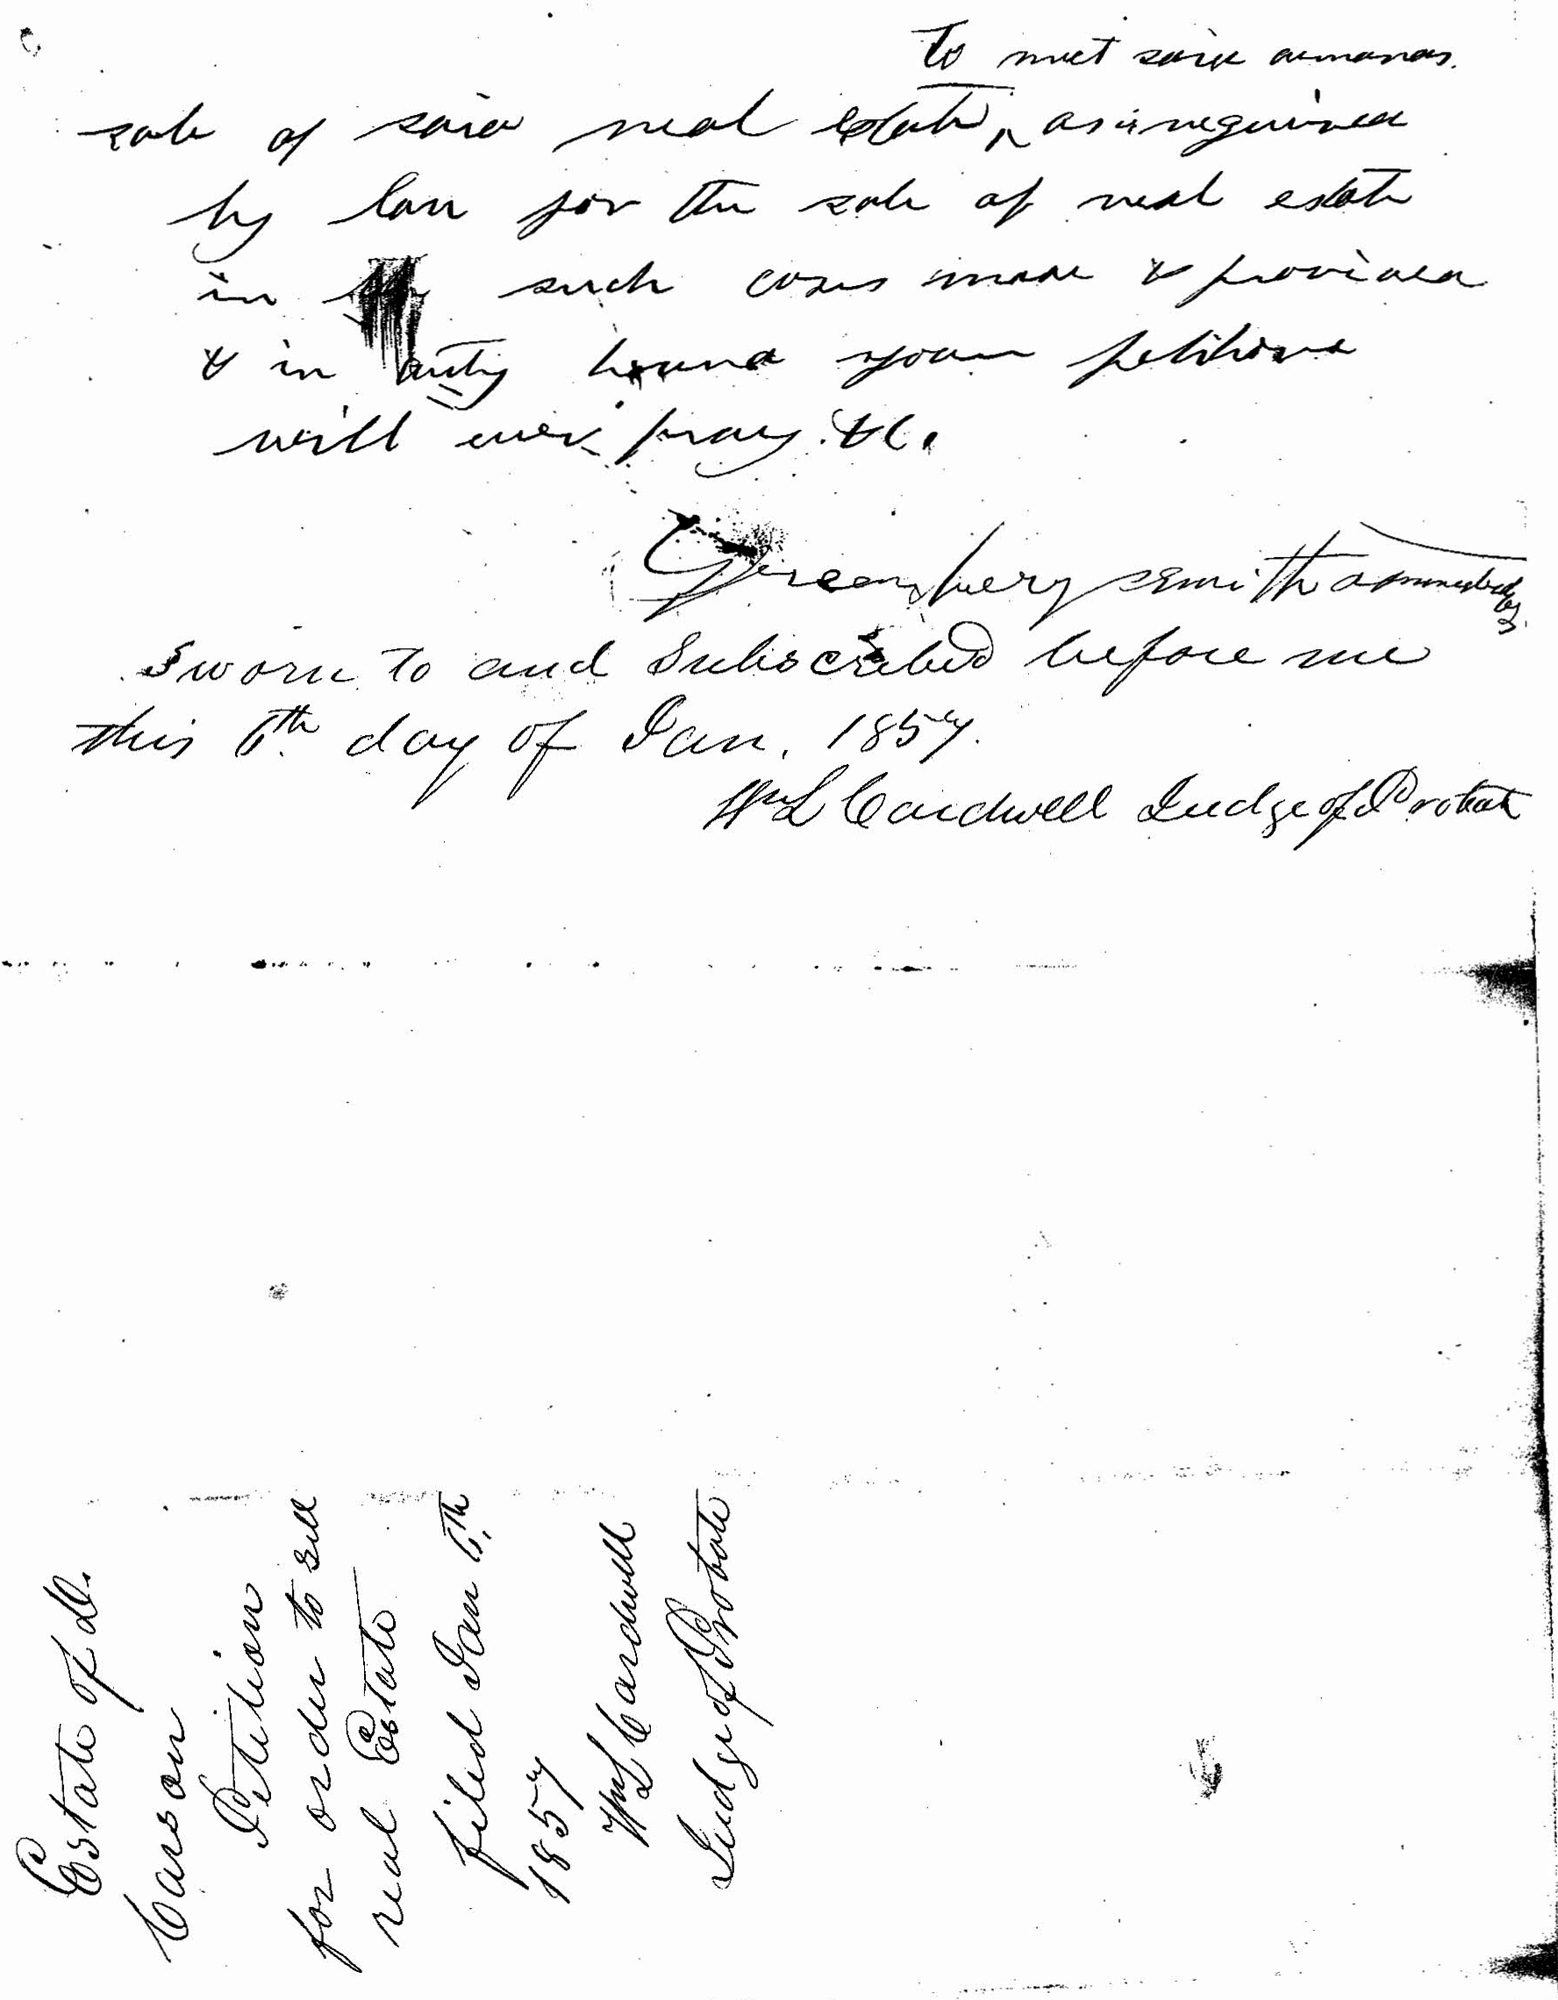 to meet said demands.
sale of said real estate, ^ as is required
by law for the sale of real estate
in such cases made & provided
& in duty bound your petitioner
will ever pray. &c.
Greenbery smith administrator
Sworn to and Subscribed before me
this 6th day of Jan. 1857.
Wm L Cardwell Judge of Probate
Estate of D.
Carson
Petition
for order to sell
real Estate
filed Jan 6th
1857
Wm L Cardwell
Judge of Probate